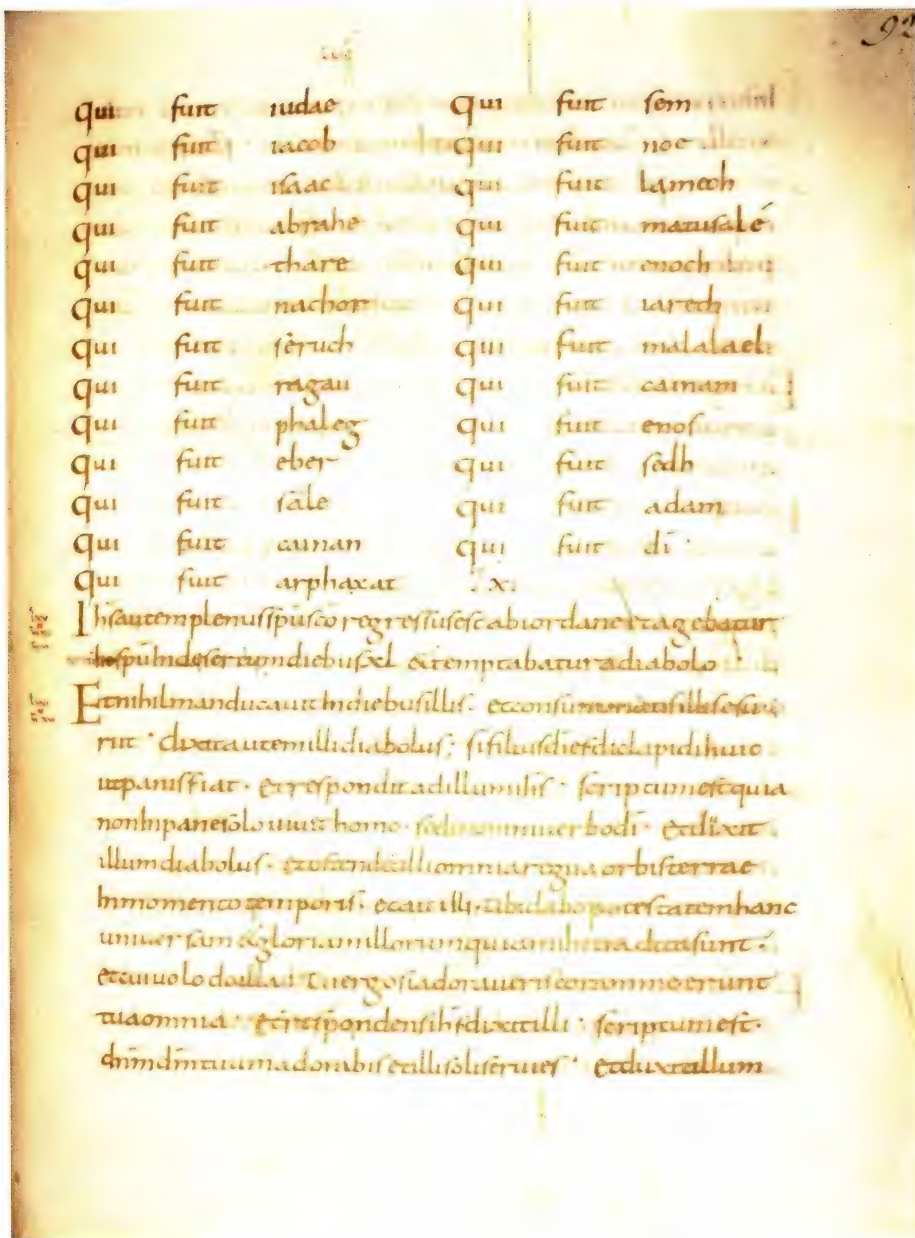 92
qui fuit iudae
qui fuit iacob
qui fuit isaac
qui fuit abrahe
qui fuit thare
qui fuit nachor
qui fuit seruch
qui fuit ragau
qui fuit phaleg
qui fuit eber
qui fuit sale
qui fuit cainan
qui fuit arphaxat
qui fuit sem
qui fuit noe
qui fuit lamech
qui fuit matusalē
qui fuit enoch
qui fuit iarech
qui fuit malalael
qui fuit cainam
qui fuit enos
qui fuit sedh
qui fuit adam
qui fuit dī
.x.
Ihs autem plenus spu sco regressus est ab iordane et agebatur
spu in desertum diebus xl et temptabatur a diabolo
Et nihil manducauit in diebus illis. et consummatis illis esuri
rut dixit autem illi diabolus; si filius di es dic lapidi huic
ut panis fiat. et respondit ad illum ihs. scriptum est quia
non in pane solo uiuit homo. sed in omni uerbo dī. et dixit
illum diabolus. et ostendit illi omnia regna orbis terrae
in momento temporis. et ait illi. tibi dabo potestatem hanc
uniuersam et gloriam illorum quia mihi tradita sunt.
et cui uolo do illa. tu ergo si adoraueris coram me erunt
tua omnia. et respondens ihs dixit illi. scriptum est.
dnm dm tuum adorabis et illi soli seruies. et duxit illum